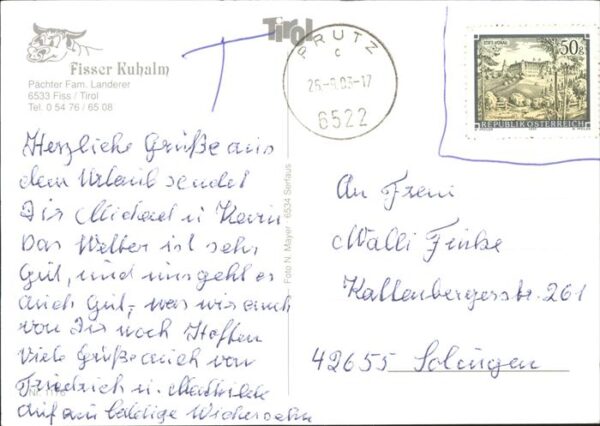 Tirol
Fisser Kuhalm
Pächter Fam. Landerer
6533 Fiss / Tirol
Tel. 0 54 76 / 65 08
PRUTZ
c
6522
STIFT WILHERING
50g
REPUBLIK ÖSTERREICH
Herzliche Grüße aus
dem Urlaub sendet
Dir Michael u Kevin
Das Wetter ist sehr
Gut, und uns geht es
auch Gut, was wir auch
von Dir noch Hoffen
Viele Grüße auch von
Friedrich u. Mathilde
Auf ein baldige Wiedersehn
Foto N. Mayer - 6534 Serfaus
An Frau
Walli Finke
42655 Solingen